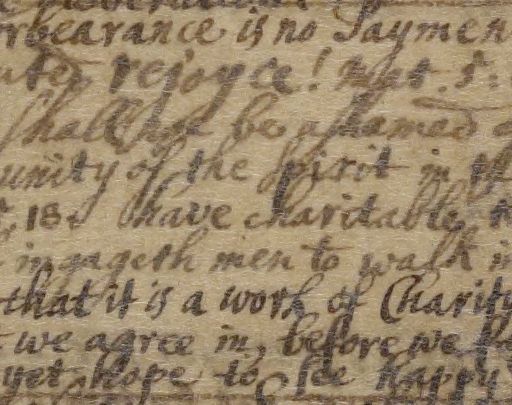 rbearance is no Paymen
rejoyce! Mat. 5:
Shall not be ashamed
unity of the Spirit in th
18. have charitable
ingageth men to walk in
that it is a work of Charity
we agree in, before we
yet hope to see happy